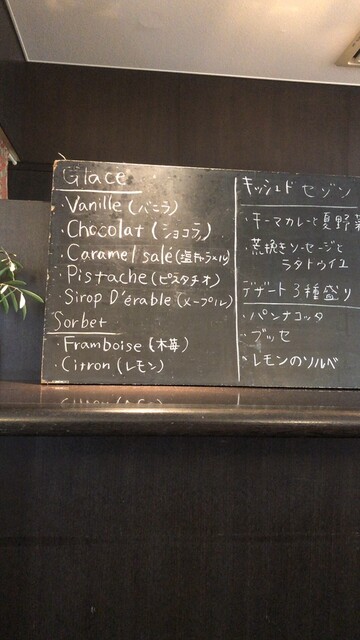 Glace
・Vanille (バニラ)
・Chocolat (ショコラ)
・Caramel salé (塩キャラメル)
・Pistache (ピスタチオ)
・Sirop D'érable (メープル)
Sorbet
・Framboise (木苺)
・Citron (レモン)
キッシュド セゾン
・キーマカレーと夏野菜
・荒挽きソーセージと
ラタトゥイユ
デザート3種盛り
・パンナコッタ
・ブッセ
・レモンのソルベ